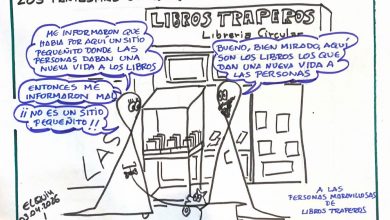 LIBROS TRAPEROS
Librería Circular
ME INFORMARON QUE
HABÍA POR AQUÍ UN SITIO
PEQUEÑITO DONDE LAS
PERSONAS DABAN UNA
NUEVA VIDA A LOS LIBROS
BUENO, BIEN MIRADO, AQUÍ
SON LOS LIBROS LOS QUE
DAN UNA NUEVA VIDA A
LAS PERSONAS
ENTONCES ME
INFORMARON MAL
¡¡NO ES UN SITIO
PEQUEÑITO!!
A LAS
PERSONAS MARAVILLOSAS
DE
LIBROS TRAPEROS